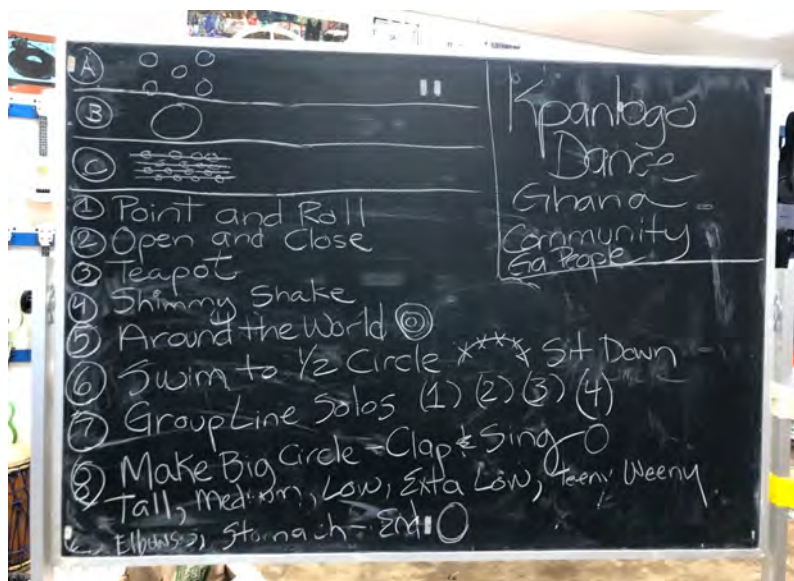 A
B
C
Kpanlogo
Dance
Ghana -
Community
Ga People
1 Point and Roll
2 Open and Close
3 Teapot
4 Shimmy Shake
5 Around the World
6 Swim to 1/2 Circle Sit Down
7 Group Line Solos (1) (2) (3) (4)
8 Make Big Circle - Clap & Sing
Tall, Medium, Low, Exta Low, Teeny Weeny
Elbows, Stomach - End